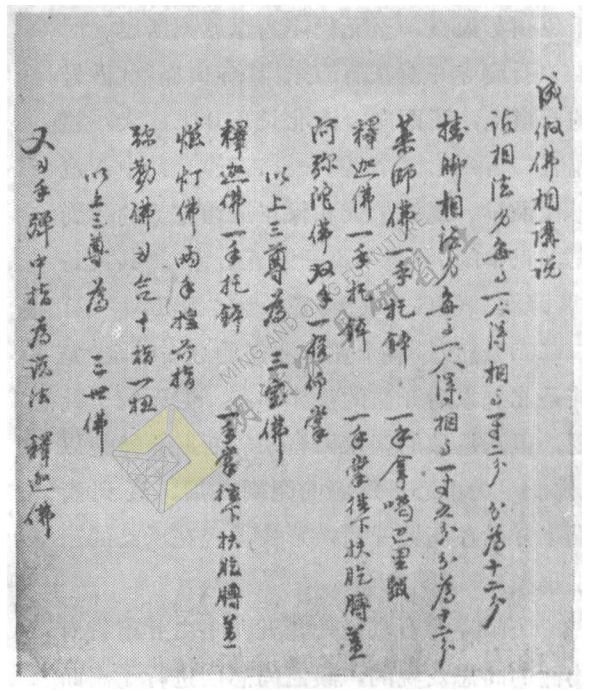 成做佛相講說
站相法身每高一尺得相高一寸二分 分為十二分
接脚相法身每高一尺深相高一寸五分分為十二分
藥師佛一手托鉢 一手拿噶巴里
釋迦佛一手托鉢 一手掌搭下扶肐膊盖
阿弥陀佛双手一仰掌
以上三尊為 三宝佛
釋迦佛一手托鉢 一手掌搭下扶肐膊盖
燃灯佛 两手 指
弥勒佛 合十指一扭
以上三尊為 三世佛
又 手彈中指為說法 釋迦佛
MING AND QING FURNITURE